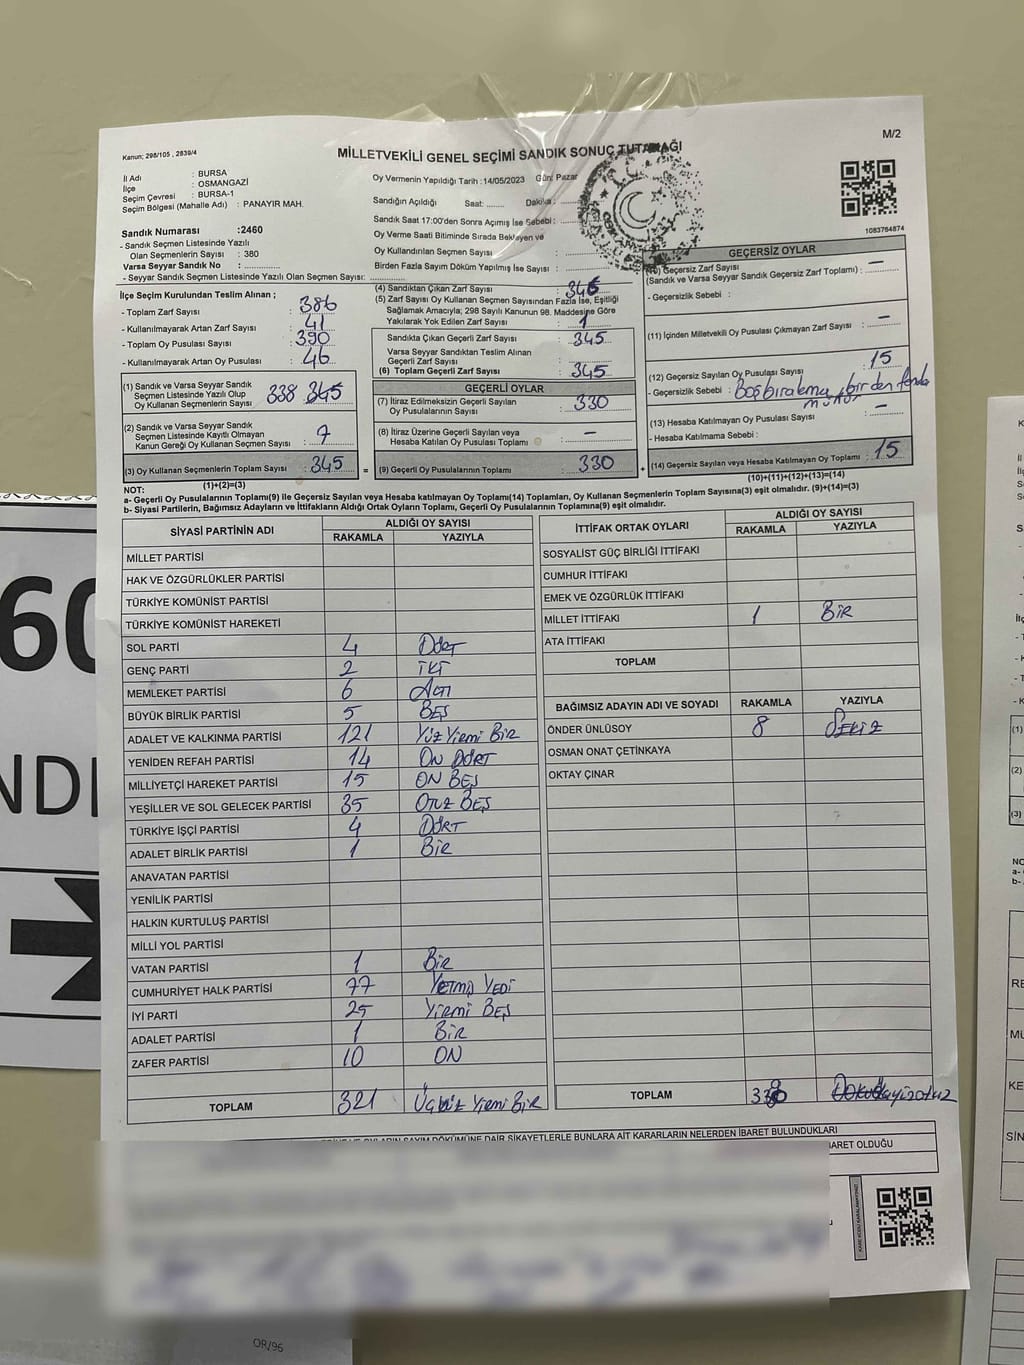 M/2
Kanun; 298/105 , 2839/4
MİLLETVEKİLİ GENEL SEÇİMİ SANDIK SONUÇ TUTANAĞI
İl Adı : BURSA
İlçe : OSMANGAZİ
Seçim Çevresi : BURSA-1
Seçim Bölgesi (Mahalle Adı) : PANAYIR MAH.
Sandık Numarası :2460
- Sandık Seçmen Listesinde Yazılı
Olan Seçmenlerin Sayısı : 380
Varsa Seyyar Sandık No :
- Seyyar Sandık Seçmen Listesinde Yazılı Olan Seçmen Sayısı:
Oy Vermenin Yapıldığı Tarih :14/05/2023 Gün: Pazar
Sandığın Açıldığı Saat: Dakika :
Sandık Saat 17:00'den Sonra Açılmış İse Sebebi :
Oy Verme Saati Bitiminde Sırada Bekleyen ve
Oy Kullandırılan Seçmen Sayısı :
Birden Fazla Sayım Döküm Yapılmış İse Sayısı :
1083764874
İlçe Seçim Kurulundan Teslim Alınan ;
- Toplam Zarf Sayısı : 386
- Kullanılmayarak Artan Zarf Sayısı : 41
- Toplam Oy Pusulası Sayısı : 390
- Kullanılmayarak Artan Oy Pusulası : 46
(1) Sandık ve Varsa Seyyar Sandık
Seçmen Listesinde Yazılı Olup
Oy Kullanan Seçmenlerin Sayısı : 338 345
(2) Sandık ve Varsa Seyyar Sandık
Seçmen Listesinde Kayıtlı Olmayan
Kanun Gereği Oy Kullanan Seçmen Sayısı : 7
(3) Oy Kullanan Seçmenlerin Toplam Sayısı : 345
(1)+(2)=(3)
(4) Sandıktan Çıkan Zarf Sayısı : 346
(5) Zarf Sayısı Oy Kullanan Seçmen Sayısından Fazla İse, Eşitliği
Sağlamak Amacıyla; 298 Sayılı Kanunun 98. Maddesine Göre
Yakılarak Yok Edilen Zarf Sayısı : 1
Sandıkta Çıkan Geçerli Zarf Sayısı : 345
Varsa Seyyar Sandıktan Teslim Alınan
Geçerli Zarf Sayısı :
(6) Toplam Geçerli Zarf Sayısı : 345
GEÇERLİ OYLAR
(7) İtiraz Edilmeksizin Geçerli Sayılan
Oy Pusulalarının Sayısı : 330
(8) İtiraz Üzerine Geçerli Sayılan veya
Hesaba Katılan Oy Pusulası Toplamı : –
= (9) Geçerli Oy Pusulalarının Toplamı : 330
GEÇERSİZ OYLAR
(10) Geçersiz Zarf Sayısı : –
(Sandık ve Varsa Seyyar Sandık Geçersiz Zarf Toplamı) :
- Geçersizlik Sebebi :
(11) İçinden Milletvekili Oy Pusulası Çıkmayan Zarf Sayısı : –
(12) Geçersiz Sayılan Oy Pusulası Sayısı : 15
- Geçersizlik Sebebi : Boş bırakma, birden fazla
mühür
(13) Hesaba Katılmayan Oy Pusulası Sayısı : –
- Hesaba Katılmama Sebebi :
+ (14) Geçersiz Sayılan veya Hesaba Katılmayan Oy Toplamı : 15
(10)+(11)+(12)+(13)=(14)
NOT:
a- Geçerli Oy Pusulalarının Toplamı(9) ile Geçersiz Sayılan veya Hesaba katılmayan Oy Toplamı(14) Toplamları, Oy Kullanan Seçmenlerin Toplam Sayısına(3) eşit olmalıdır. (9)+(14)=(3)
b- Siyasi Partilerin, Bağımsız Adayların ve İttifakların Aldığı Ortak Oyların Toplamı, Geçerli Oy Pusulalarının Toplamına(9) eşit olmalıdır.
SİYASİ PARTİNİN ADI ALDIĞI OY SAYISI
RAKAMLA YAZIYLA
MİLLET PARTİSİ
HAK VE ÖZGÜRLÜKLER PARTİSİ
TÜRKİYE KOMÜNİST PARTİSİ
TÜRKİYE KOMÜNİST HAREKETİ
SOL PARTİ 4 DÖRT
GENÇ PARTİ 2 İKİ
MEMLEKET PARTİSİ 6 ALTI
BÜYÜK BİRLİK PARTİSİ 5 BEŞ
ADALET VE KALKINMA PARTİSİ 121 Yüz Yirmi Bir
YENİDEN REFAH PARTİSİ 14 ON DÖRT
MİLLİYETÇİ HAREKET PARTİSİ 15 ON BEŞ
YEŞİLLER VE SOL GELECEK PARTİSİ 35 OTUZ BEŞ
TÜRKİYE İŞÇİ PARTİSİ 4 DÖRT
ADALET BİRLİK PARTİSİ 1 BİR
ANAVATAN PARTİSİ
YENİLİK PARTİSİ
HALKIN KURTULUŞ PARTİSİ
MİLLİ YOL PARTİSİ
VATAN PARTİSİ 1 BİR
CUMHURİYET HALK PARTİSİ 77 YETMİŞ YEDİ
İYİ PARTİ 25 YİRMİ BEŞ
ADALET PARTİSİ 1 BİR
ZAFER PARTİSİ 10 ON
TOPLAM 321 Üçyüz Yirmi Bir
İTTİFAK ORTAK OYLARI ALDIĞI OY SAYISI
RAKAMLA YAZIYLA
SOSYALİST GÜÇ BİRLİĞİ İTTİFAKI
CUMHUR İTTİFAKI
EMEK VE ÖZGÜRLÜK İTTİFAKI
MİLLET İTTİFAKI 1 BİR
ATA İTTİFAKI
TOPLAM
BAĞIMSIZ ADAYIN ADI VE SOYADI RAKAMLA YAZIYLA
ÖNDER ÜNLÜSOY 8 SEKİZ
OSMAN ONAT ÇETİNKAYA
OKTAY ÇINAR
TOPLAM
DÖKÜMÜNE DAİR ŞİKAYETLERLE BUNLARA AİT KARARLARIN NELERDEN İBARET BULUNDUKLARI
BARET OLDUĞU
60
NDI
OR/96